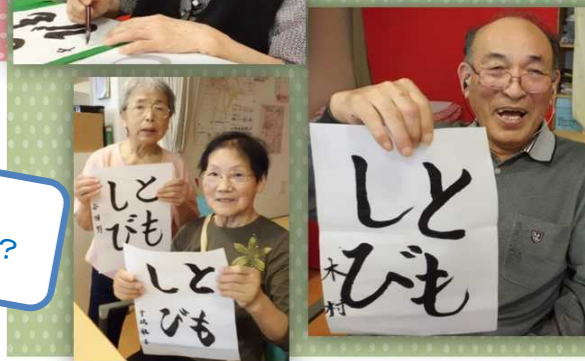 とも
しび
とも
しび
とも
しび
木村
？